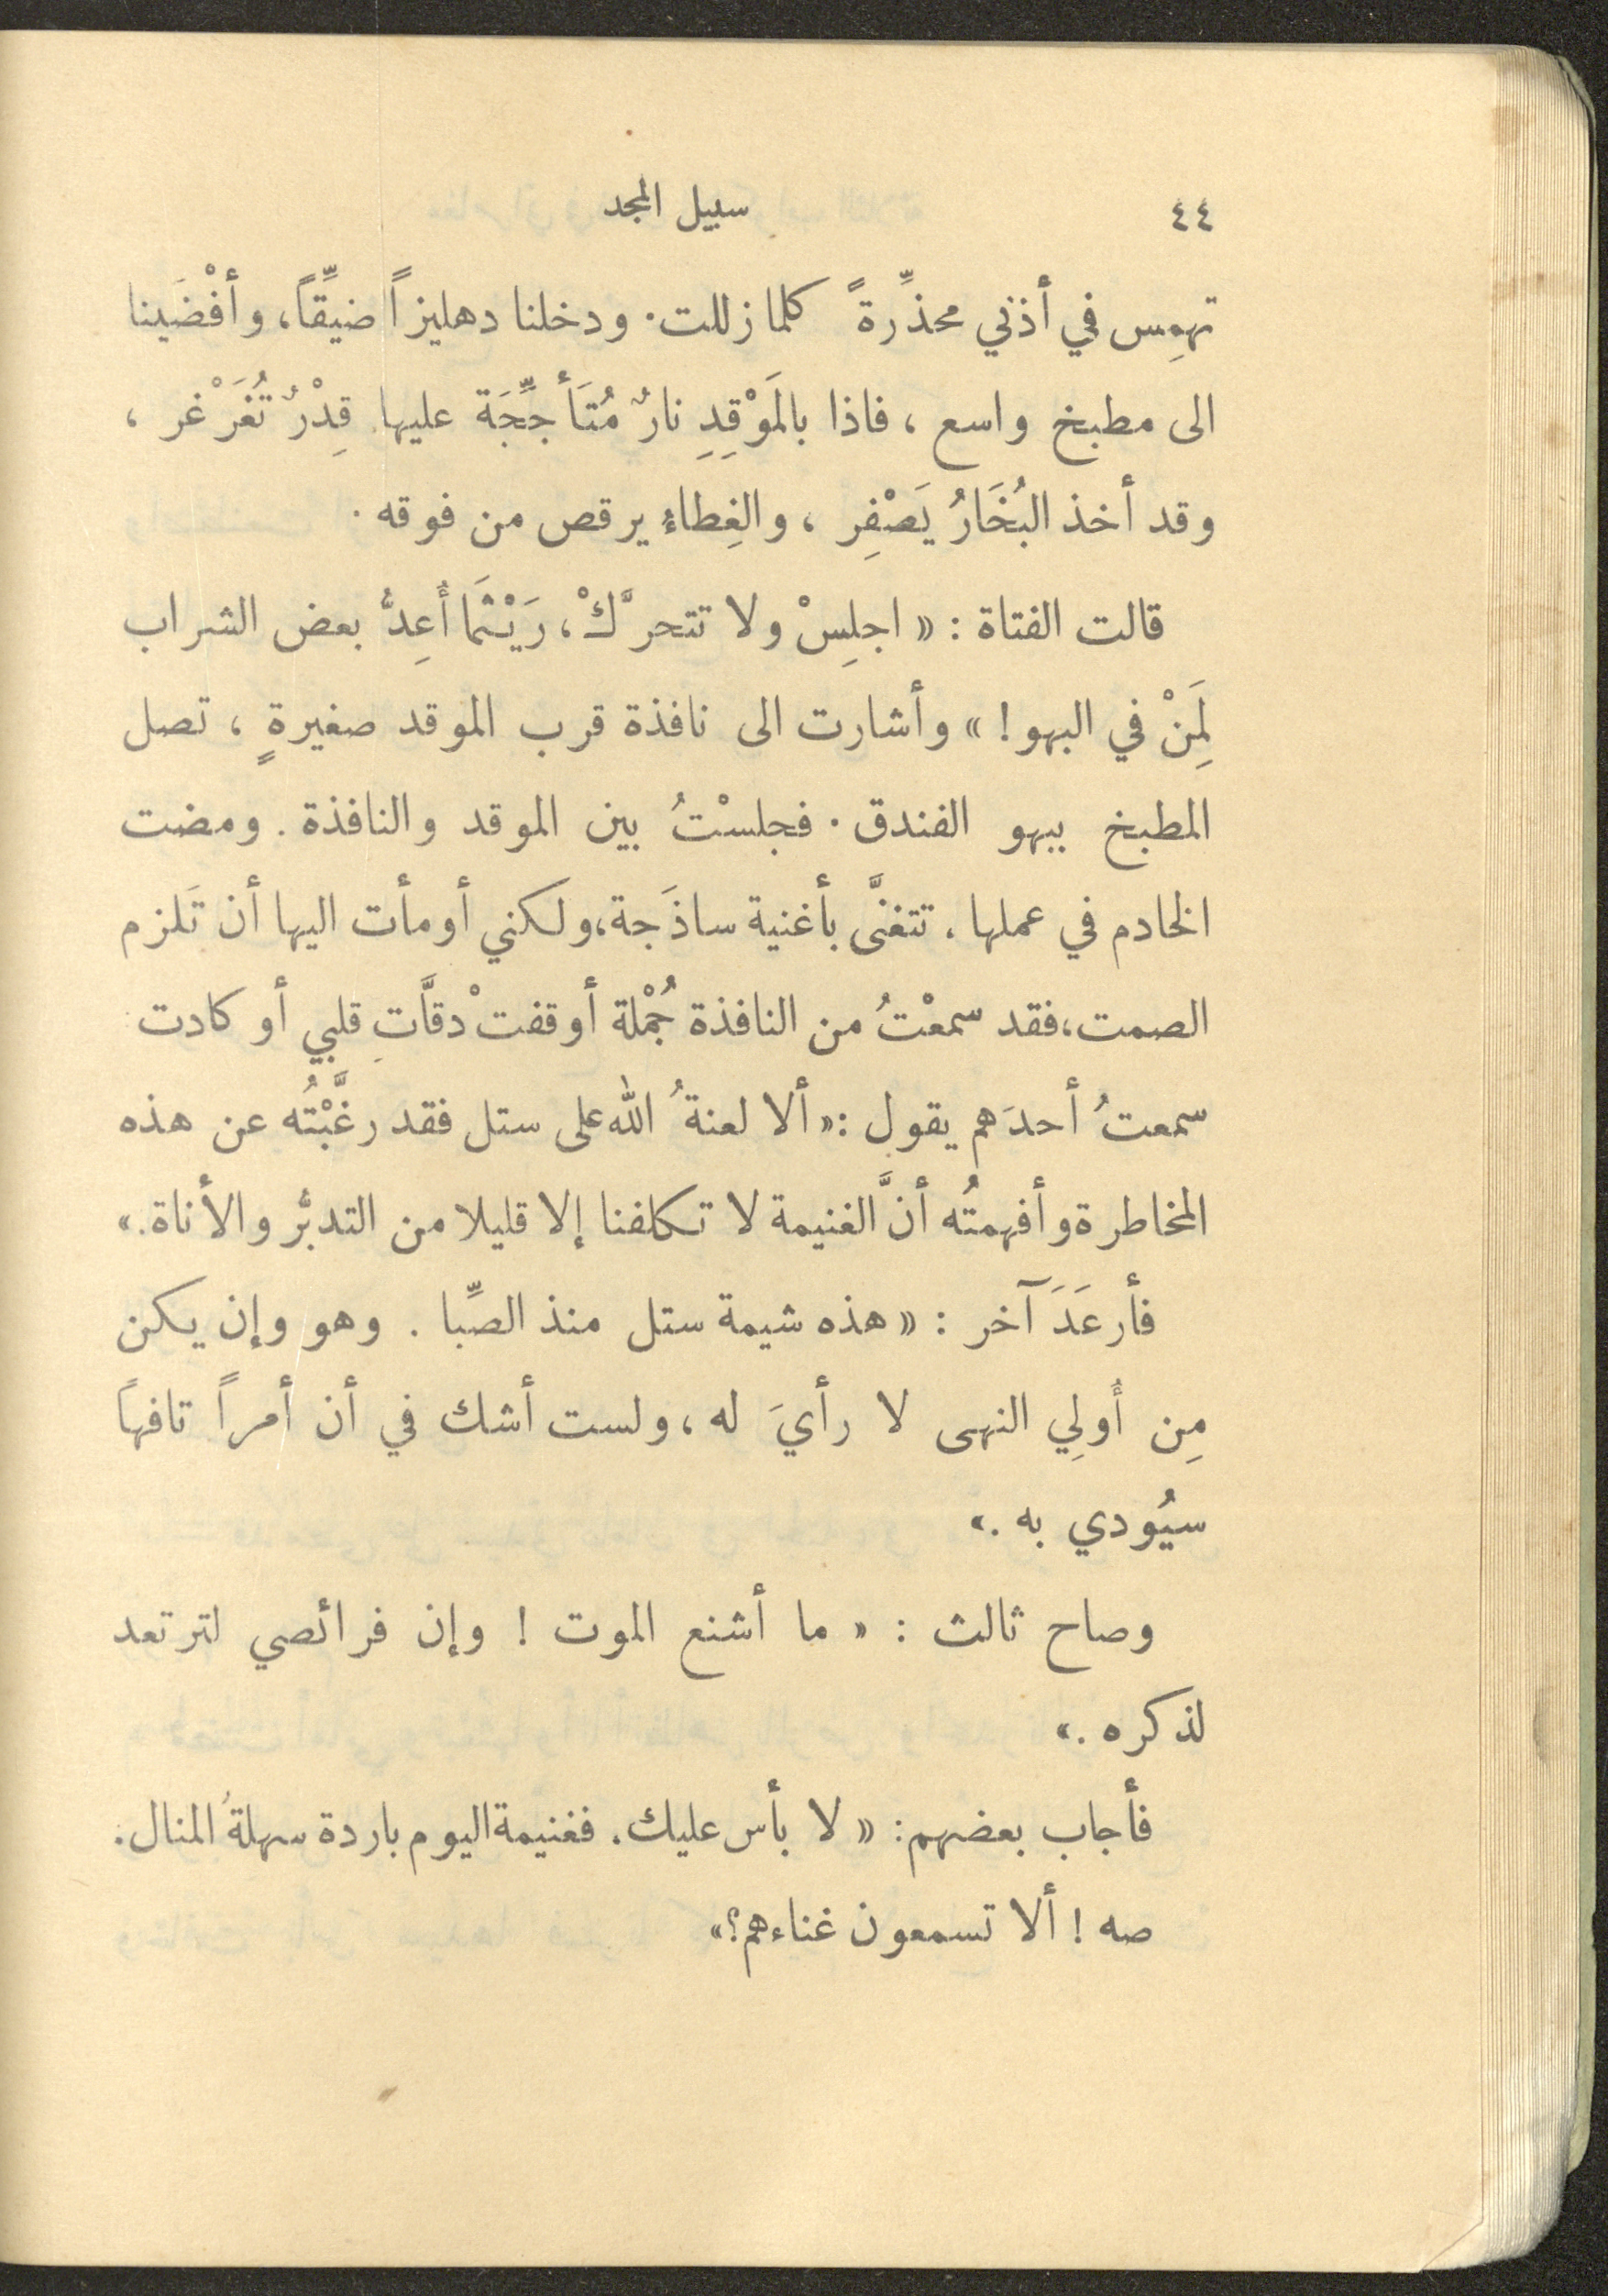 ٤٤ سبيل المجد
تهمِس في أذني محذِّرةً كلما زللت. ودخلنا دهليزاً ضيِّقاً، وأفْضَينا
الى مطبخ واسع ، فاذا بالمَوْقِدِ نارٌ مُتَأجِّجَة عليها قِدْرٌ تُغَرْغر ،
وقد أخذ البُخَارُ يَصْفِر ، والغِطاءُ يرقص من فوقه .
قالت الفتاة : « اجلِسْ ولا تتحرَّكْ، رَيْثَما أُعِدُّ بعض الشراب
لِمَنْ في البهو ! » وأشارت الى نافذة قرب الموقد صغيرةٍ ، تصل
المطبخ ببهو الفندق . فجلسْتُ بين الموقد والنافذة . ومضت
الخادم في عملها ، تتغنَّى بأغنية ساذَجة، ولكني أومأت اليها أن تَلزم
الصمت، فقد سمعْتُ من النافذة جُمْلة أوقفتْ دقَّاتِ قلبي أو كادت
سمعتُ أحدَهم يقول : « ألا لعنةُ الله على ستل فقد رغَّبْتُه عن هذه
المخاطرة وأفهمتُه أنَّ الغنيمة لا تكلفنا إلا قليلا من التدبُّر والأناة.»
فأرعَدَ آخر : « هذه شيمة ستل منذ الصِّبا . وهو وإن يكن
مِن أُولِي النهى لا رأيَ له ، ولست أشك في أن أمراً تافهاً
سيُودي به .»
وصاح ثالث : « ما أشنع الموت ! وإن فرائصي لترتعد
لذكره .»
فأجاب بعضهم : « لا بأس عليك . فغنيمة اليوم باردة سهلةُ المنال .
صه ! ألا تسمعون غناءهم؟»